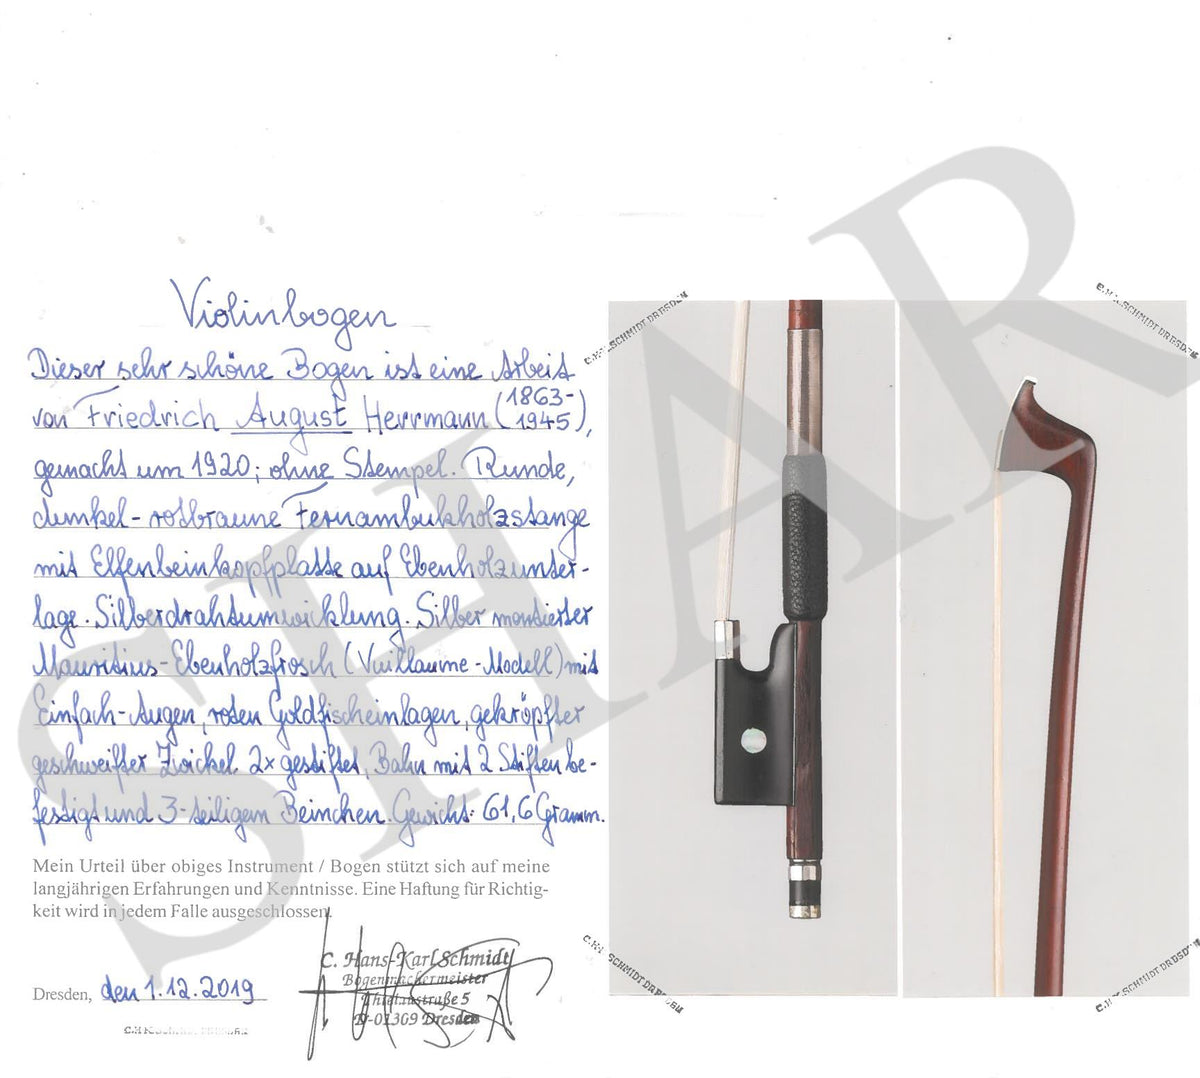 Violinbogen
Dieser sehr schöne Bogen ist eine Arbeit
von Friedrich August Herrmann (1863-1945),
gemacht um 1920; ohne Stempel. Runde,
dunkel-rotbraune Fernambukholzstange
mit Elfenbeinkopfplatte auf Ebenholzunter-
lage. Silberdrahtumwicklung. Silber montierter
Mauritius-Ebenholzfrosch (Vuillaume-Modell) mit
Einfach-Augen, roten Goldfischeinlagen, gekröpfter
geschweifter Zwickel 2x gestiftet, Bahn mit 2 Stiften be-
festigt und 3-teiligem Beinchen. Gewicht: 61,6 Gramm.
Mein Urteil über obiges Instrument / Bogen stützt sich auf meine
langjährigen Erfahrungen und Kenntnisse. Eine Haftung für Richtig-
keit wird in jedem Falle ausgeschlossen.
C. Hans-Karl Schmidt
Bogenmachermeister
D-01309 Dresden
Dresden, den 1.12.2019
C.H-K. SCHMIDT DRESDEN
C.H-K. SCHMIDT DRESDEN
C.H-K. SCHMIDT DRESDEN
C.H-K. SCHMIDT DRESDEN
SHAR